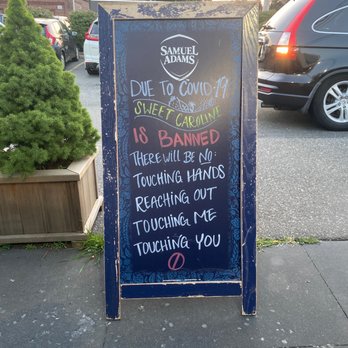 SAMUEL
ADAMS
DUE TO COVID-19
SWEET CAROLINE
IS BANNED
THERE WILL BE NO:
TOUCHING HANDS
REACHING OUT
TOUCHING ME
TOUCHING YOU